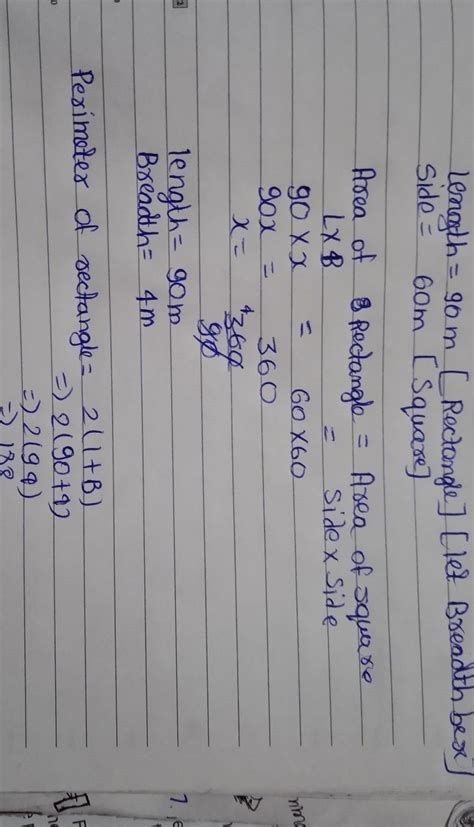 Length = 90m [Rectangle] [let Breadth be x]
Side = 60m [Square]
Area of Rectangle = Area of square
L x B = Side x Side
90 x x = 60 x 60
90x = 360
x = 4 360
90
length = 90m
Breadth = 4m
Perimeter of rectangle = 2(l+B)
=) 2(90+4)
=) 2(94)
=) 188
7.